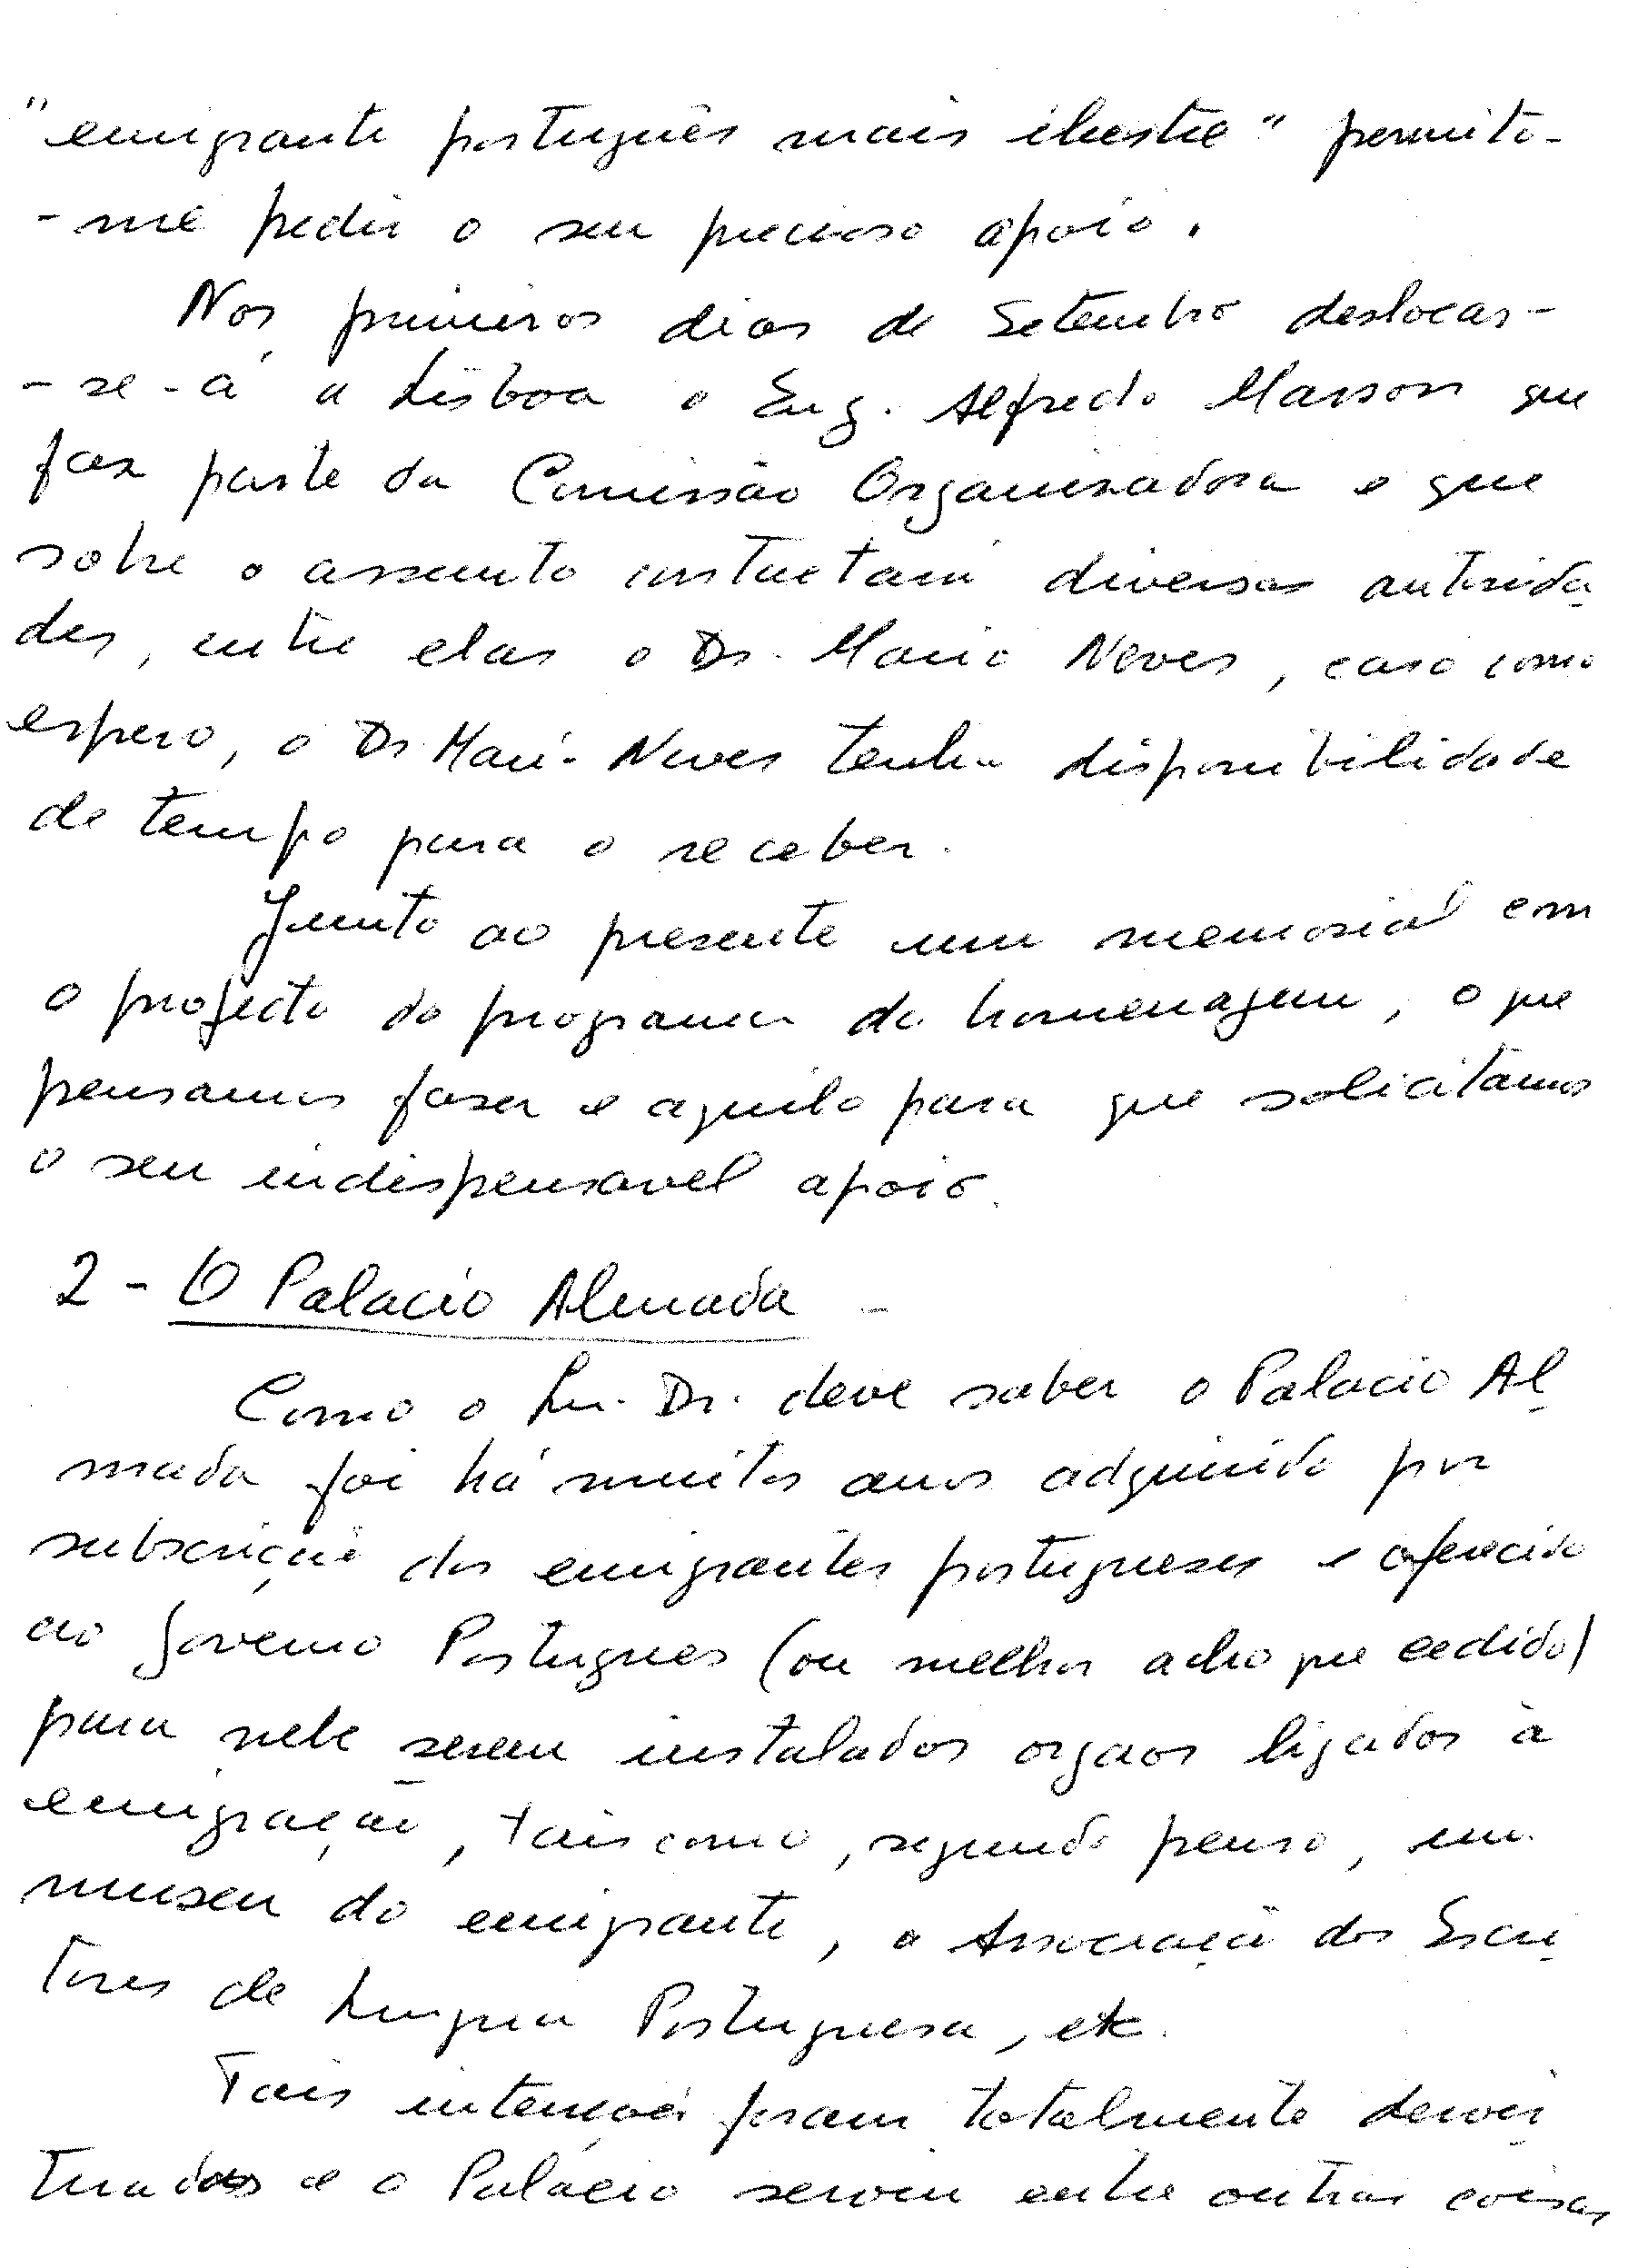 "emigrante português mais ilustre" permito-
-me pedir o seu precioso apoio.
Nos primeiros dias de Setembro deslocar-
-se-á a Lisboa o Eng. Alfredo Masson que
faz parte da Comissão Organizadora e que
sobre o assunto contactará diversas autorida
des, entre elas o Dr. Mario Neves, caso como
espero, o Dr. Mario Neves tenha disponibilidade
de tempo para o receber.
Junto ao presente um memorial com
o projecto do programa da homenagem, o que
pensamos fazer e aquilo para que solicitamos
o seu indispensavel apoio.
2 - O Palacio Almada -
Como o Sr. Dr. deve saber o Palacio Al
mada foi há muitos anos adquirido por
subscrição dos emigrantes portugueses e oferecido
ao Governo Portugues (ou melhor acho que cedido)
para nele serem instalados orgãos ligados à
emigração, tais como, segundo penso, um
museu do emigrante, a Associação dos Escri
tores de Lingua Portuguesa, etc.
Tais intenções foram totalmente desvir
tuadas e o Palácio serviu entre outras coisas